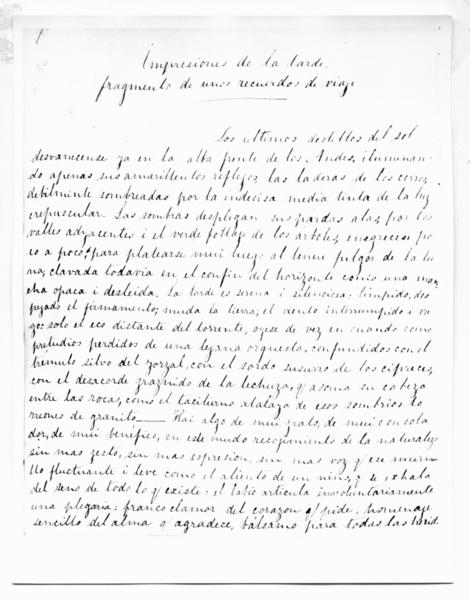 1
Impresiones de la tarde
fragmento de unos recuerdos de viaje
Los ultimos destellos del sol
desvanecense ya en la alba frente de los Andes, iluminan-
do apenas sus amarillentos reflejos, las laderas de los cerros,
debilmente sombreadas por la indecisa media tinta de la luz
crepuscular. Las sombras despliegan sus pardas alas, por los
valles adyacentes i el verde follaje de los árboles, enegrecese po-
co a poco, para platearse mui luego al tenue fulgor de la lu
na, clavada todavia en el confin del horizonte como una man
cha opaca i desleida. La tarde es serena i silenciosa: limpido, des
pejado el firmamento; muda la tierra; el viento interrumpido i va
go; solo el eco distante del torrente, oyese de vez en cuando como
preludios perdidos de una lejana orquesta, confundidos con el
trémulo silvo del zorzal, con el sordo susurro de los cipreces,
con el desacorde graznido de la lechuza, q asoma su cabeza
entre las rocas, como el taciturno atalaya de esos sombrios to
rreones de granito — Hai algo de mui grato, de mui consola
dor, de mui benéfico, en este mudo recojimiento de la naturaleza
sin mas jesto, sin mas espresion, sin mas voz q ese murmu
llo fluctuante i leve como el aliento de un niño, q se exhala
del seno de todo lo q existe: el labio articula involuntariamente
una plegaria: franco clamor del corazon q pide, homenaje
sencillo del alma q agradece, bálsamo para todas las herid.